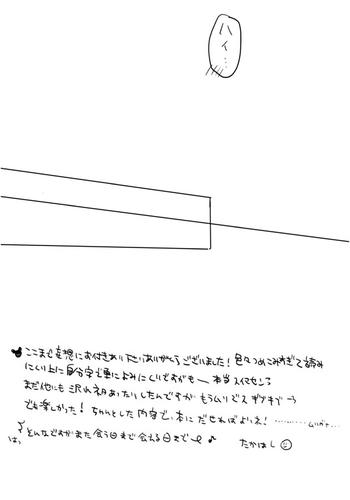 ハイ…
ここまで妄想にお付きあい下さいありがとうございました！色々つめこみすぎて読み
にくい上に自分字で更によみにくいですがも〜本当スイマセンっ
まだ他にも沢山ネタあったりしたんですが もうムリでス
でも楽しかった！ちゃんとした内容で、本に だせればよいえ！………ムリガナ…
そんなですがまた会う日まで会える日まで〜♪ たかはし
はっ